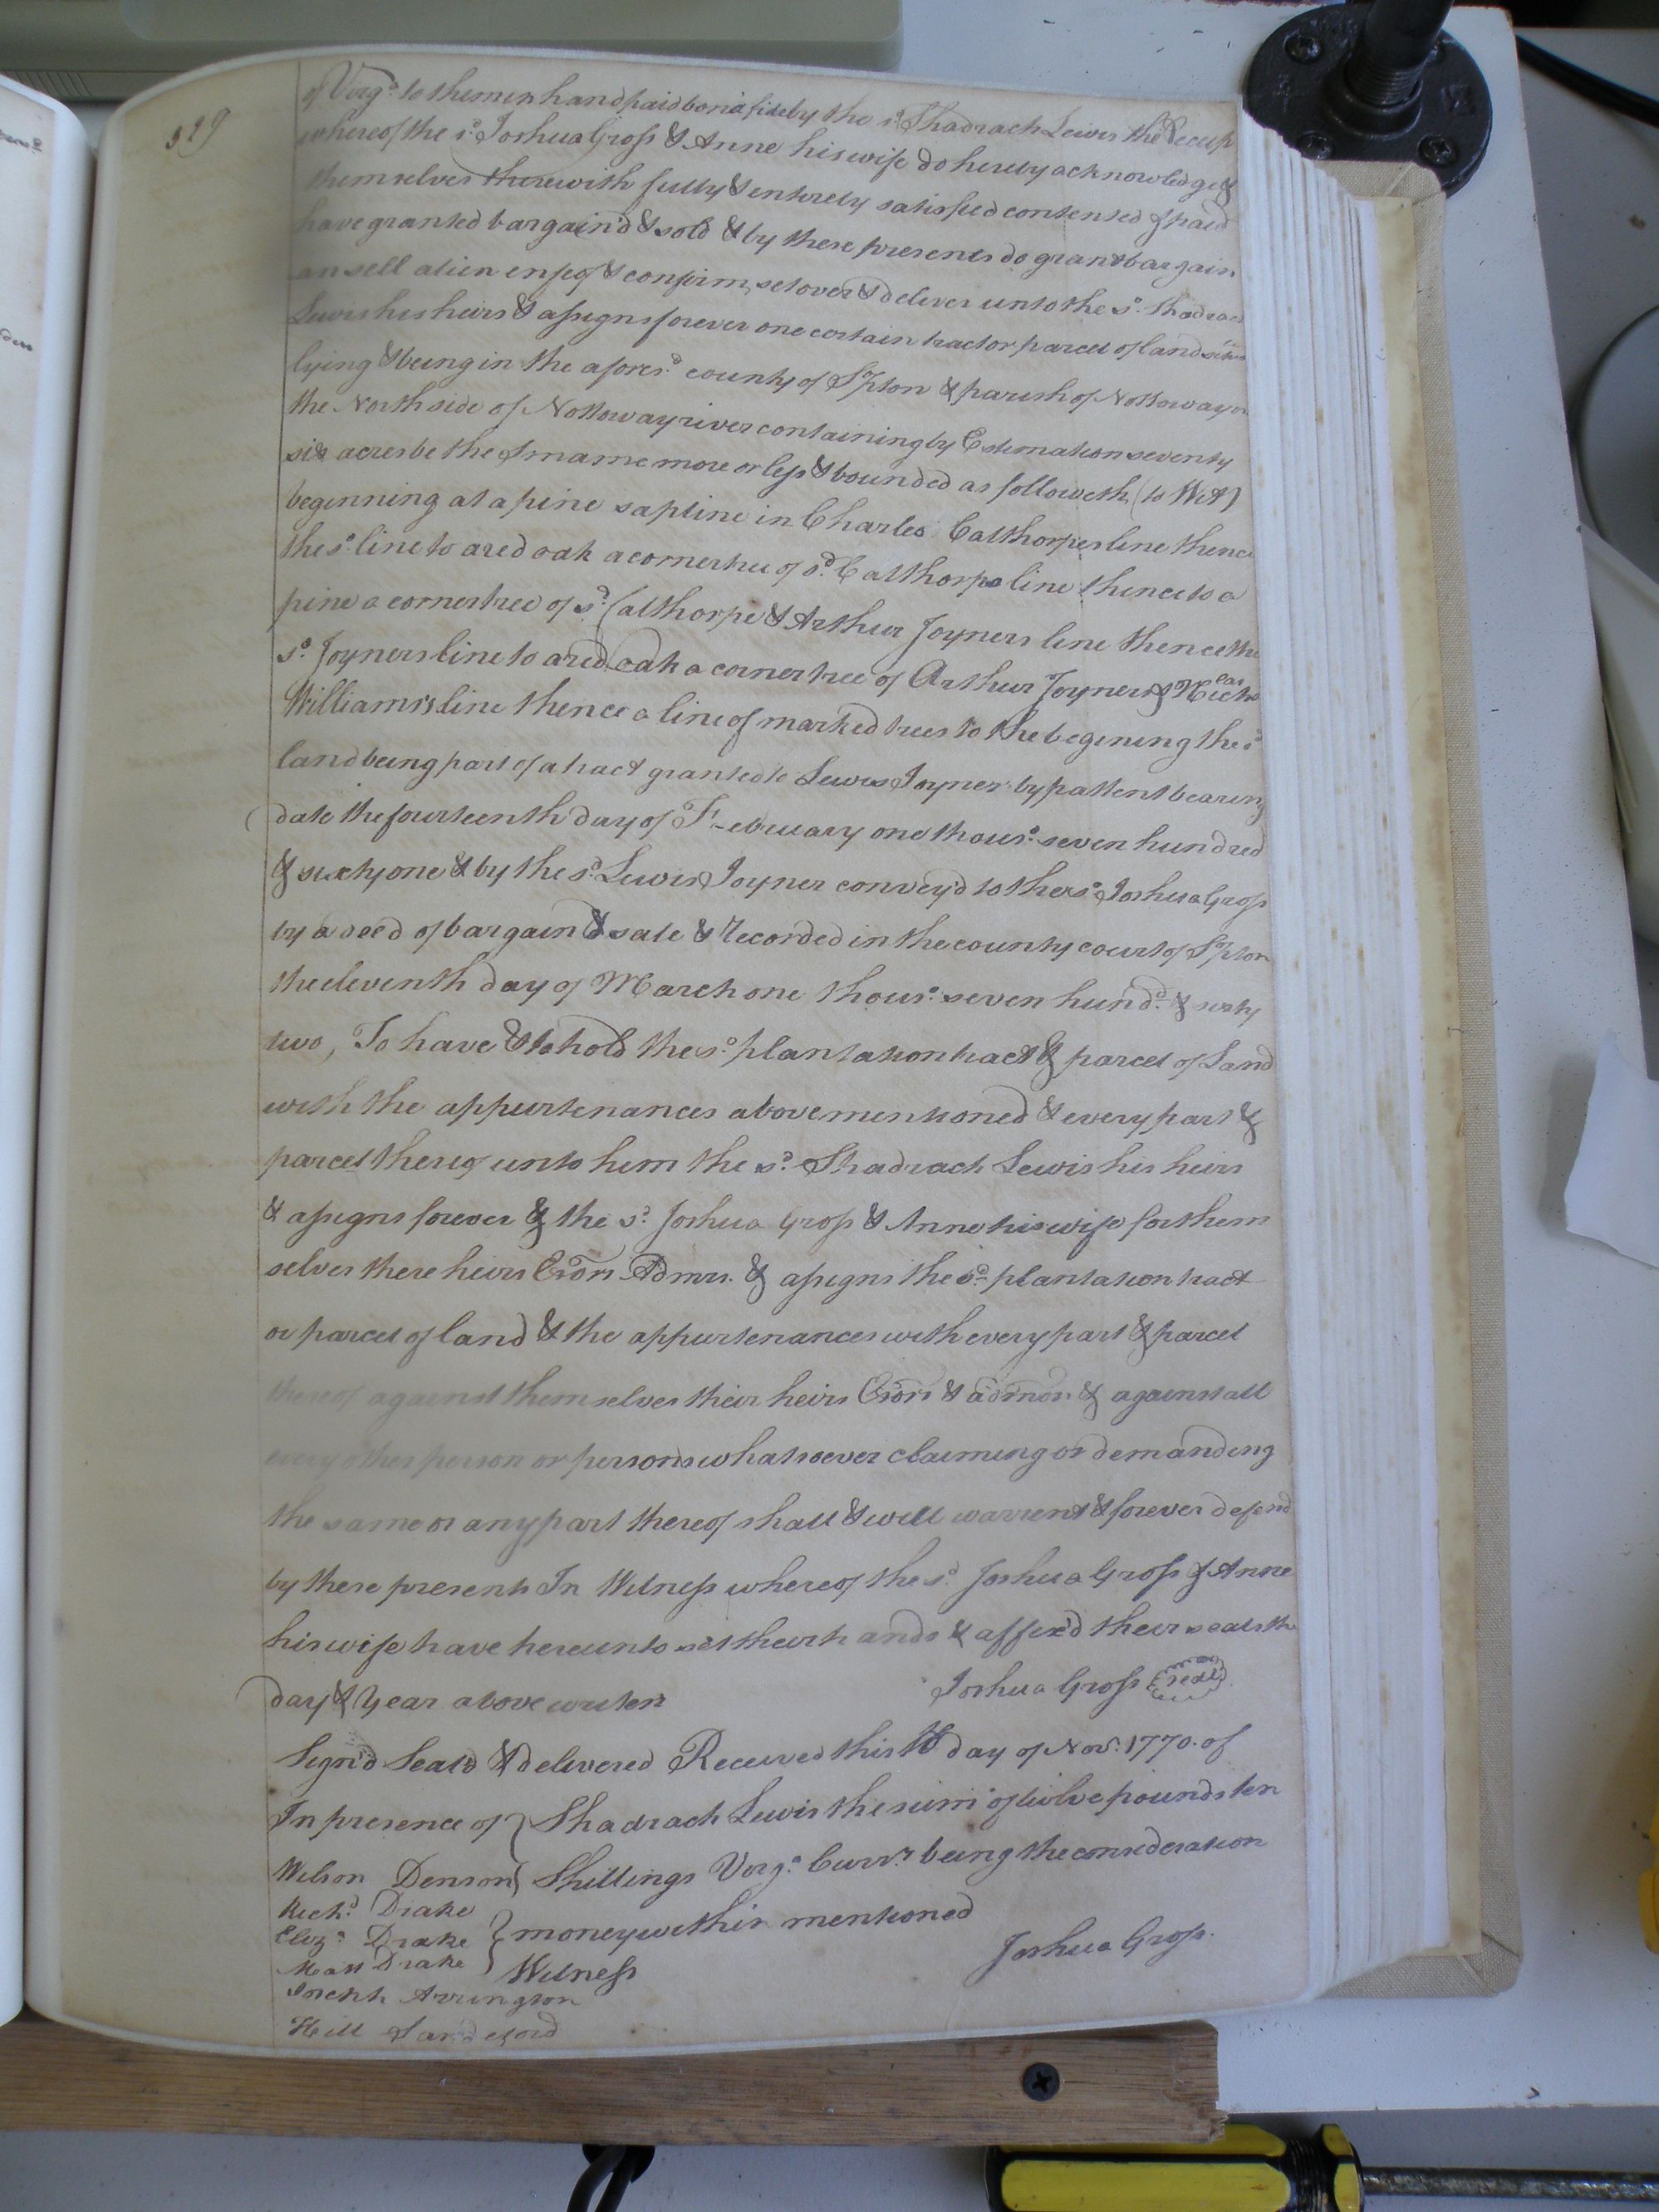 519
of Virga. to them in hand paid bona fide by the sd. Shadrach Lewis the Receip
whereof the sd. Joshua Gross & Anne his wife do hereby acknowledge &
themselves therewith fully & entirely satisfied contented & paid
have granted bargain'd & sold & by these presents do grant bargain
an sell alien enfeof & confirm, set over & deliver unto the sd. Shadrach
Lewis his heirs & assigns forever one certain tract or parcel of land
lying & being in the aforesd. county of So.pton & parish of Nottoway on
the North side of Nottoway river containing by Estimation seventy
six acres be the Smame more or less & bounded as followeth, (to Wit)
beginning at a pine sapline in Charles Calthorpes line thence
the sd. line to a red oak a corner tree of sd. Calthorps line thence to a
pine a corner tree of sd. Calthorpe & Arthur Joyners line thence the
sd. Joyners line to a red oak a corner tree of Arthur Joyners & Nichoeas
Williams's line thence a line of marked trees to the begining the sd.
land being part of a tract granted to Lewis Joyner by pattent bearing
date the fourteenth day of February one thousd. seven hundred
& sixty one & by the sd. Lewis Joyner convey'd to the sd. Joshua Gross
by a deed of bargain & sale & recorded in the county court of So.pton
the eleventh day of March one thousd. seven hundd. & sixty
two, To have & to hold the sd. plantation tract & parcel of Land
with the appurtenances above mentioned & every part &
parcel thereof unto him the sd. Shadrach Lewis his heirs
& assigns forever & the sd. Joshua Gross & Anne his wife for them
selves there heirs Exors Admrs. & assigns the sd. plantation tract
or parcel of land & the appurtenances with every part & parcel
thereof against themselves their heirs Exors & admors & against all
every other person or persons whatsoever claiming or demanding
the same or any part thereof shall & will warrent & forever defend
by these presents In Witness whereof the sd. Joshua Gross & Anne
his wife have hereunto set their hands & affix'd their seals the
day & Year above writen Joshua Gross (seal)
Sign'd Seal'd & delivered Received this day of Nov. 1770. of
In presence of Shadrach Lewis the sum of twlve pounds ten
Wilson Denson Shillings Virga. Curry. being the consideration
Richd. Drake
Eliza. Drake money within mentioned
Joshua Gross.
Drake Witness
Arrington
Hill Sandeford